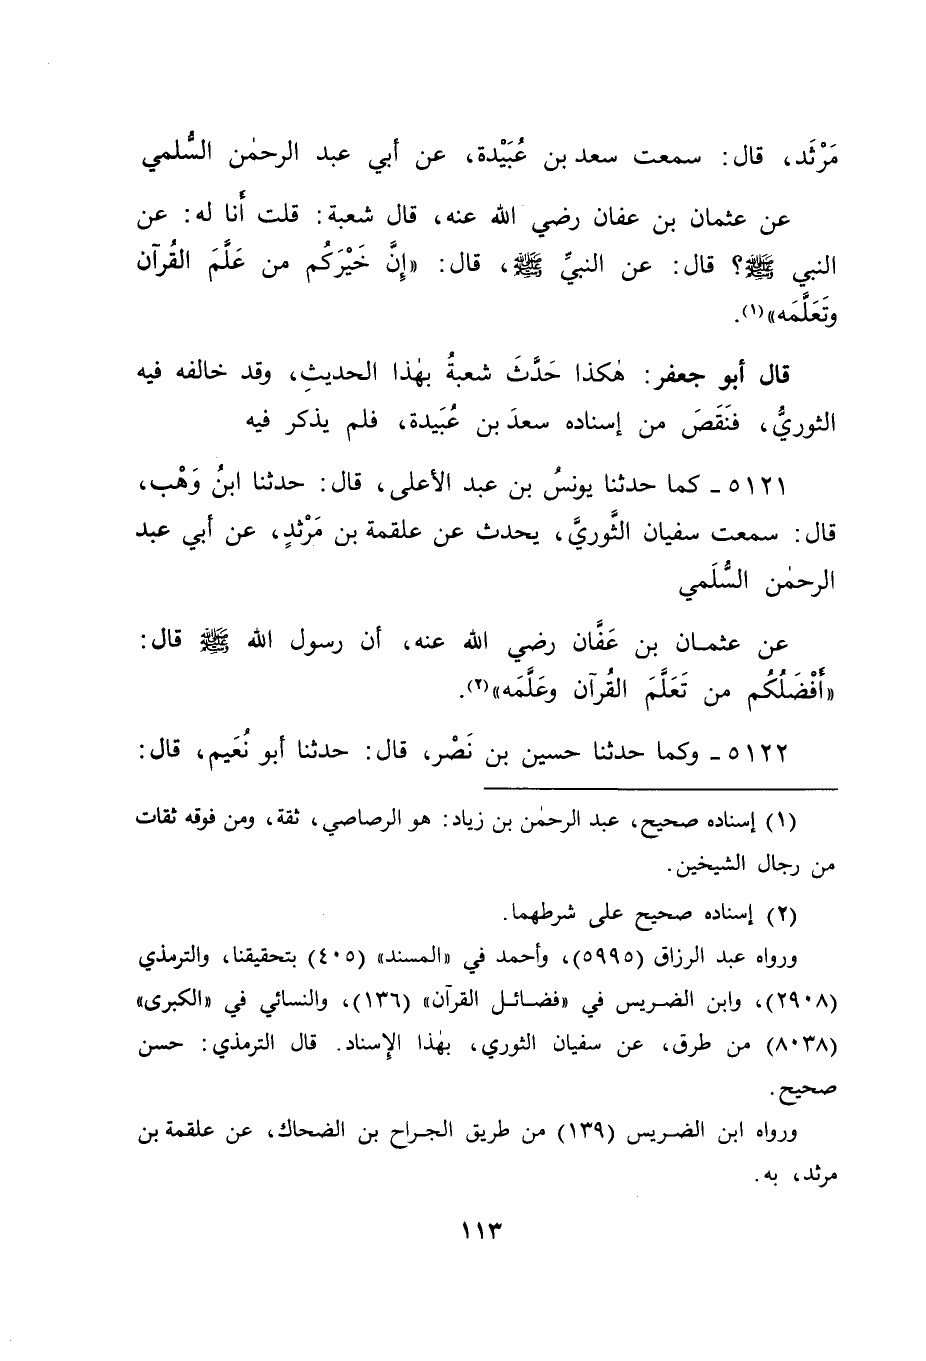 مَرْثَد، قال: سمعت سعد بن عُبَيْدة، عن أبي عبد الرحمٰن السُّلمي
عن عثمان بن عفان رضي الله عنه، قال شعبة: قلت أَنا له: عن
النبي ﷺ؟ قال: عن النبيِّ ﷺ، قال: «إِنَّ خَيْرَكُم من عَلَّمَ القُرآن
وتَعَلَّمَه»(١).
قال أبو جعفر: هٰكذا حَدَّثَ شعبةُ بهٰذا الحديثِ، وقد خالفه فيه
الثوريُّ، فنَقَصَ من إسناده سعدَ بن عُبَيدة، فلم يذكر فيه
٥١٢١ ـ كما حدثنا يونسُ بن عبد الأعلى، قال: حدثنا ابنُ وَهْب،
قال: سمعت سفيان الثَّوريَّ، يحدث عن علقمة بن مَرْثدٍ، عن أبي عبد
الرحمٰن السُّلَمي
عن عثمـان بن عَفَّان رضي الله عنه، أن رسول الله ﷺ قال:
«أَفْضَلُكُم من تَعَلَّمَ القُرآن وعَلَّمَه»(٢).
٥١٢٢ ـ وكما حدثنا حسين بن نَصْر، قال: حدثنا أبو نُعَيم، قال:
(١) إسناده صحيح، عبد الرحمٰن بن زياد: هو الرصاصي، ثقة، ومن فوقه ثقات
من رجال الشيخين.
(٢) إسناده صحيح على شرطهما.
ورواه عبد الرزاق (٥٩٩٥)، وأحمد في «المسند» (٤٠٥) بتحقيقنا، والترمذي
(٢٩٠٨)، وابن الضريس في «فضائـل القرآن» (١٣٦)، والنسائي في «الكبرى»
(٨٠٣٨) من طرق، عن سفيان الثوري، بهٰذا الإِسناد. قال الترمذي: حسن
صحيح.
ورواه ابن الضـريس (١٣٩) من طريق الجـراح بن الضحاك، عن علقمة بن
مرثد، به.
١١٣